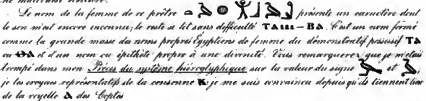 Le nom de la femme de ce prêtre présente un caractère dont
le son m'est encore inconnu; le reste se lit sans difficulté TA – BA. C'est un nom formé
comme la grande masse des noms propres Égyptiens de femme du démonstratif possessif TA
ou et d'un nom ou épithète propre à une divinité. Vous remarquerez que je m'étais
trompé dans mon Précis du système hiéroglyphique sur la valeur du signe et
je la croyais représentative de la consonne K; je me suis convaincu depuis qu'ils tiennent lieu
de la voyelle A des Coptes